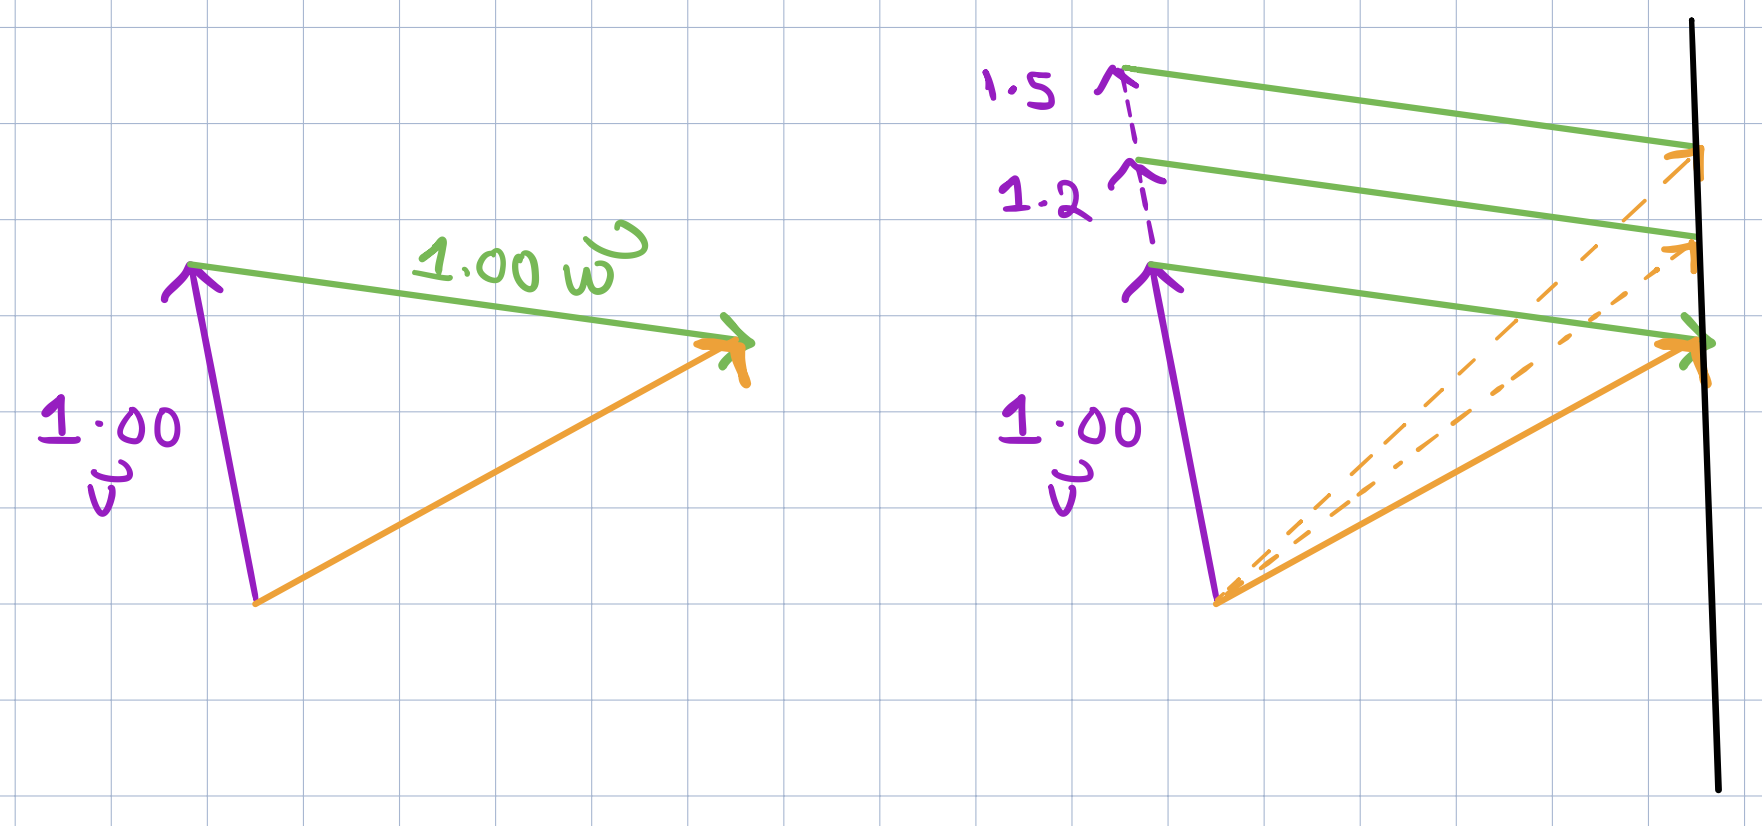 1.00 w
1.00
v
1.5
1.2
1.00
v